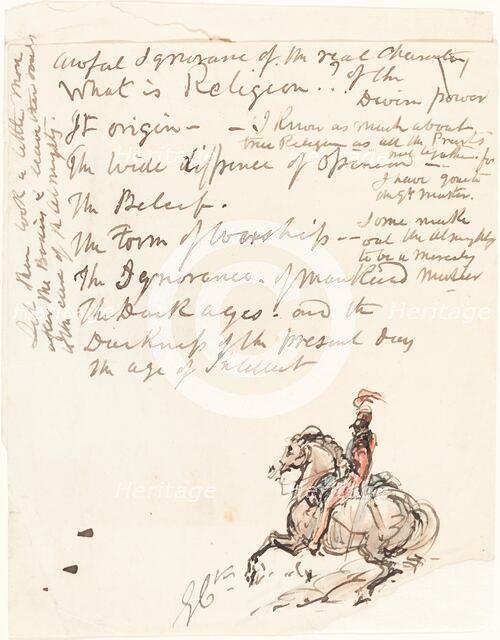 awful Ignorance of the real Character
What is Religion..? of the
Divine power
It origin - - I know as much about
true Religion as all the Priests
put together - for
The wide diffrence of Opinion -
I have gone to
the Gt Master.
The Belief.
The Form of Worship -- Some make
out the Almighty
to be a merciless
Master
The Ignorance. of Mankind
The Dark ages. and the
Darkness of the present day
the age of Intellect
Let them work a little more
after the bodies & leave their souls
to the care of the Almighty.
Heritage
Heritage
Heritage
Heritage
Heritage
Heritage